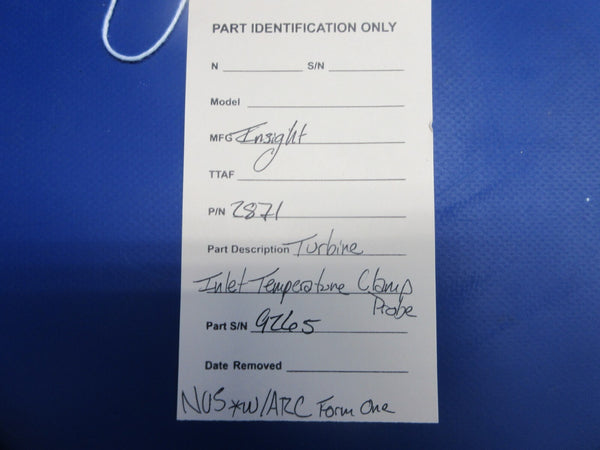 PART IDENTIFICATION ONLY
N S/N
Model
MFG Insight
TTAF
P/N 2871
Part Description Turbine
Inlet Temperature Clamp
Probe
Part S/N 9265
Date Removed
NOS *W/ARC Form One